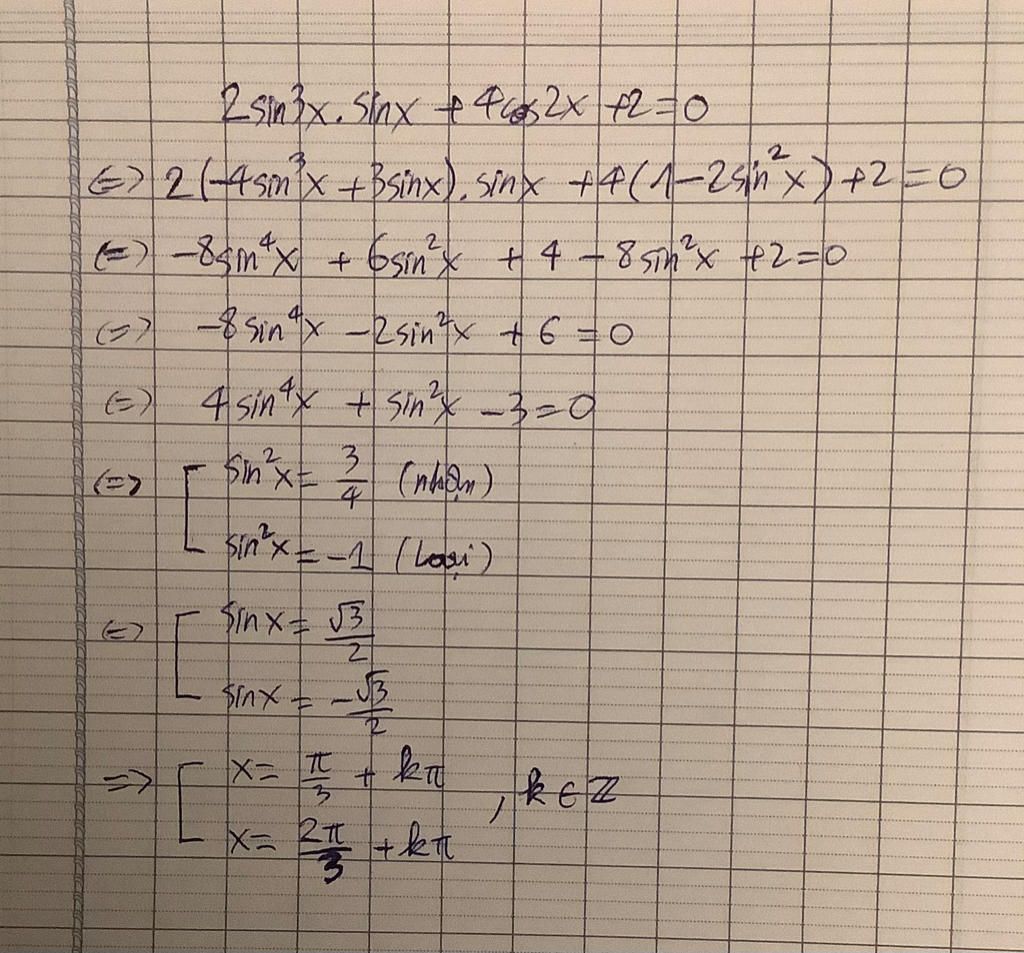 2sin3x.sinx + 4cos2x + 2 = 0
<=> 2(-4sin³x + 3sinx).sinx + 4(1 - 2sin²x) + 2 = 0
<=> -8sin⁴x + 6sin²x + 4 - 8sin²x + 2 = 0
<=> -8sin⁴x - 2sin²x + 6 = 0
<=> 4sin⁴x + sin²x - 3 = 0
<=> [ sin²x = 3/4 (nhận)
sin²x = -1 (Loại)
<=> [ sinx = √3/2
sinx = -√3/2
=> [ x = π/3 + kπ
, k ∈ ℤ
x = 2π/3 + kπ